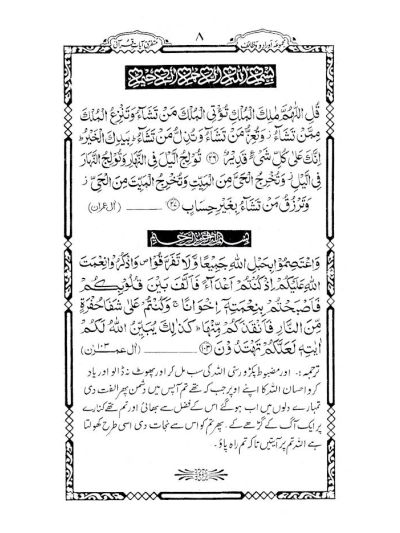 متفرق آیات قرآن
۸
مجموعہ اوراد و وظائف
بِسْمِ اللهِ الرَّحْمٰنِ الرَّحِيْمِ
قُلِ اللّٰهُمَّ مٰلِكَ الْمُلْكِ تُؤْتِي الْمُلْكَ مَنْ تَشَآءُ وَتَنْزِعُ الْمُلْكَ
مِمَّنْ تَشَآءُ ز وَتُعِزُّ مَنْ تَشَآءُ وَتُذِلُّ مَنْ تَشَآءُ ط بِيَدِكَ الْخَيْرُ ط
اِنَّكَ عَلٰى كُلِّ شَىْءٍ قَدِيْرٌ (۲۶) تُوْلِجُ الَّيْلَ فِى النَّهَارِ وَتُوْلِجُ النَّهَارَ
فِى الَّيْلِ ز وَتُخْرِجُ الْحَىَّ مِنَ الْمَيِّتِ وَتُخْرِجُ الْمَيِّتَ مِنَ الْحَىِّ ز
وَتَرْزُقُ مَنْ تَشَآءُ بِغَيْرِ حِسَابٍ (۲۷) (اٰل عمران)
بسم الله الرحمن الرحيم
وَاعْتَصِمُوْا بِحَبْلِ اللهِ جَمِيْعًا وَّلَا تَفَرَّقُوْا ص وَاذْكُرُوْا نِعْمَتَ
اللهِ عَلَيْكُمْ اِذْ كُنْتُمْ اَعْدَآءً فَاَلَّفَ بَيْنَ قُلُوْبِكُمْ
فَاَصْبَحْتُمْ بِنِعْمَتِهٖٓ اِخْوَانًا ج وَكُنْتُمْ عَلٰى شَفَا حُفْرَةٍ
مِّنَ النَّارِ فَاَنْقَذَكُمْ مِّنْهَا ط كَذٰلِكَ يُبَيِّنُ اللهُ لَكُمْ
اٰيٰتِهٖ لَعَلَّكُمْ تَهْتَدُوْنَ (۱۰۳) (اٰل عمران)
ترجمہ :۔ اور مضبوط پکڑو رسی اللہ کی سب مل کر اور پھوٹ نہ ڈالو اور یاد
کرو احسان اللہ کا اپنے اوپر جب کہ تھے تم آپس میں دشمن پھر الفت دی
تمہارے دلوں میں اب ہو گئے اس کے فضل سے بھائی اور تم تھے کنارے
پر ایک آگ کے گڑھے کے۔ پھر تم کو اس سے نجات دی اسی طرح کھولتا
ہے اللہ تم پر آیتیں تاکہ تم راہ پاؤ۔